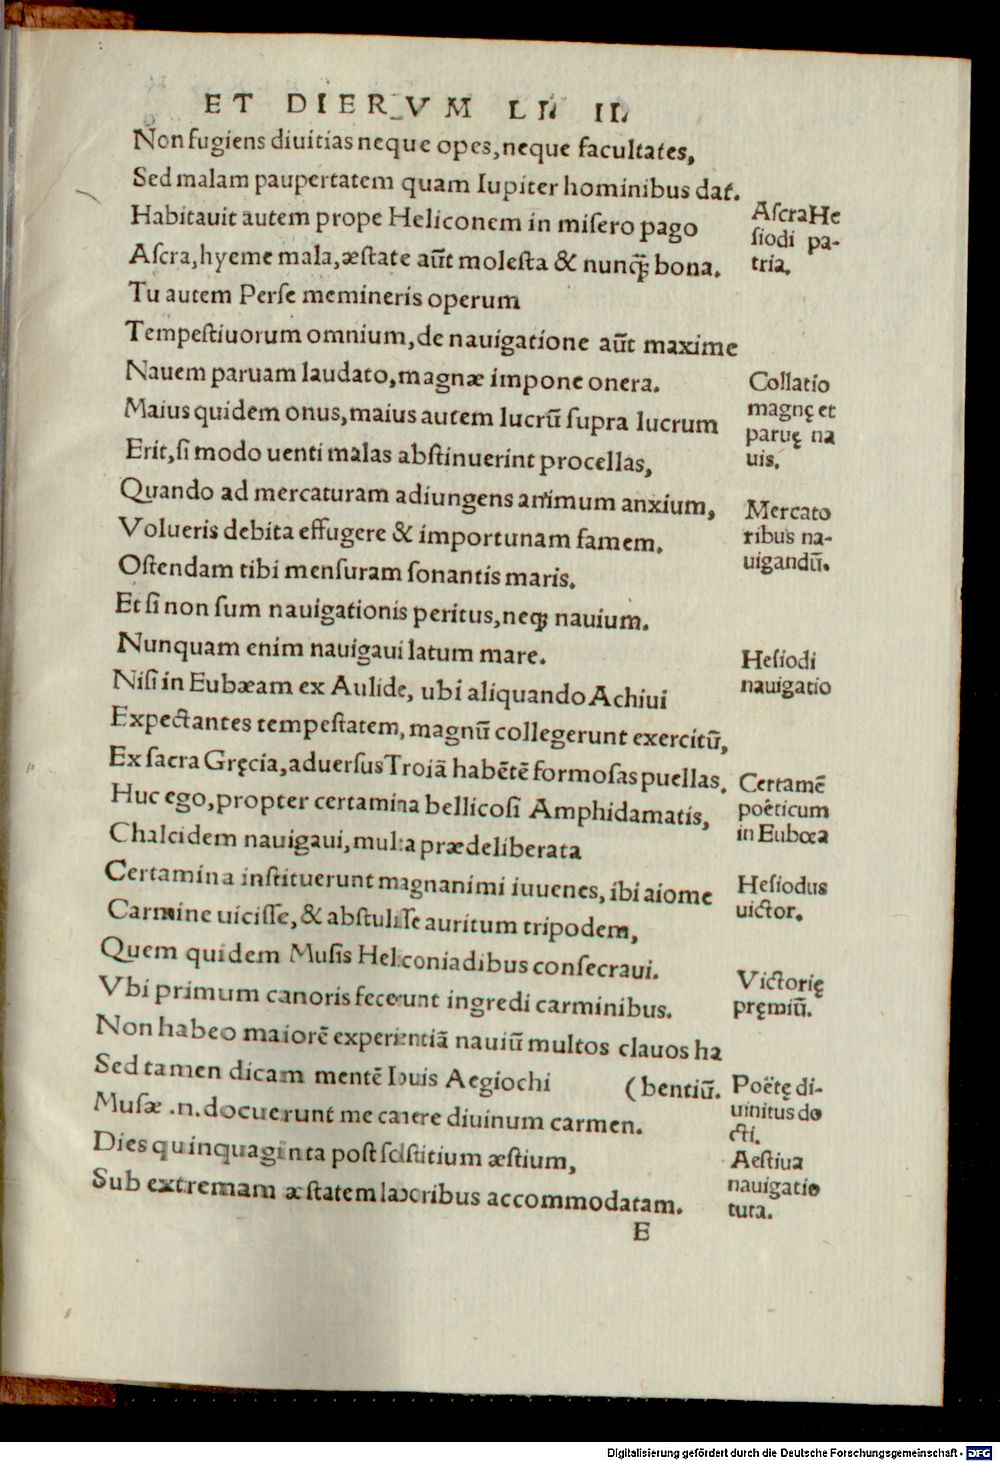 ET DIERVM LI. II.
Non fugiens diuitias neque opes, neque facultates,
Sed malam paupertatem quam Iupiter hominibus dat.
Habitauit autem prope Heliconem in misero pago
Ascra, hyeme mala, æstate aūt molesta & nunq̄ bona.
Tu autem Perse memineris operum
Tempestiuorum omnium, de nauigatione aūt maxime
Nauem paruam laudato, magnæ impone onera.
Maius quidem onus, maius autem lucrū supra lucrum
Erit, si modo uenti malas abstinuerint procellas,
Quando ad mercaturam adiungens animum anxium,
Volueris debita effugere & importunam famem.
Ostendam tibi mensuram sonantis maris.
Et si non sum nauigationis peritus, neq; nauium.
Nunquam enim nauigaui latum mare.
Nisi in Eubæam ex Aulide, ubi aliquando Achiui
Expectantes tempestatem, magnū collegerunt exercitū,
Ex sacra Gręcia, aduersus Troiā habētē formosas puellas.
Huc ego, propter certamina bellicosi Amphidamatis,
Chalcidem nauigaui, multa prædeliberata
Certamina instituerunt magnanimi iuuenes, ibi aiome
Carmine uicisse, & abstulisse auritum tripodem,
Quem quidem Musis Heliconiadibus consecraui.
Vbi primum canoris fecerunt ingredi carminibus.
Non habeo maiorē experientiā nauiū multos clauos ha
Sed tamen dicam mentē Iouis Aegiochi (bentiū.
Musæ .n. docuerunt me canere diuinum carmen.
Dies quinquaginta post solstitium æstium,
Sub extremam æstatem laboribus accommodatam.
E
Ascra He
siodi pa-
tria.
Collatio
magnę et
paruę na
uis.
Mercato
ribus na-
uigandū.
Hesiodi
nauigatio
Certamē
poëticum
in Eubœa
Hesiodus
uictor.
Victorię
pręmiū.
Poëtę di-
uinitus do
cti.
Aestiua
nauigatio
tuta.
Digitalisierung gefördert durch die Deutsche Forschungsgemeinschaft - DFG